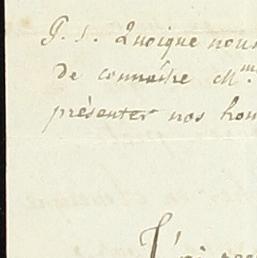 P. S. Quoique nous
de connaître Mme
présenter nos hom
J'ai